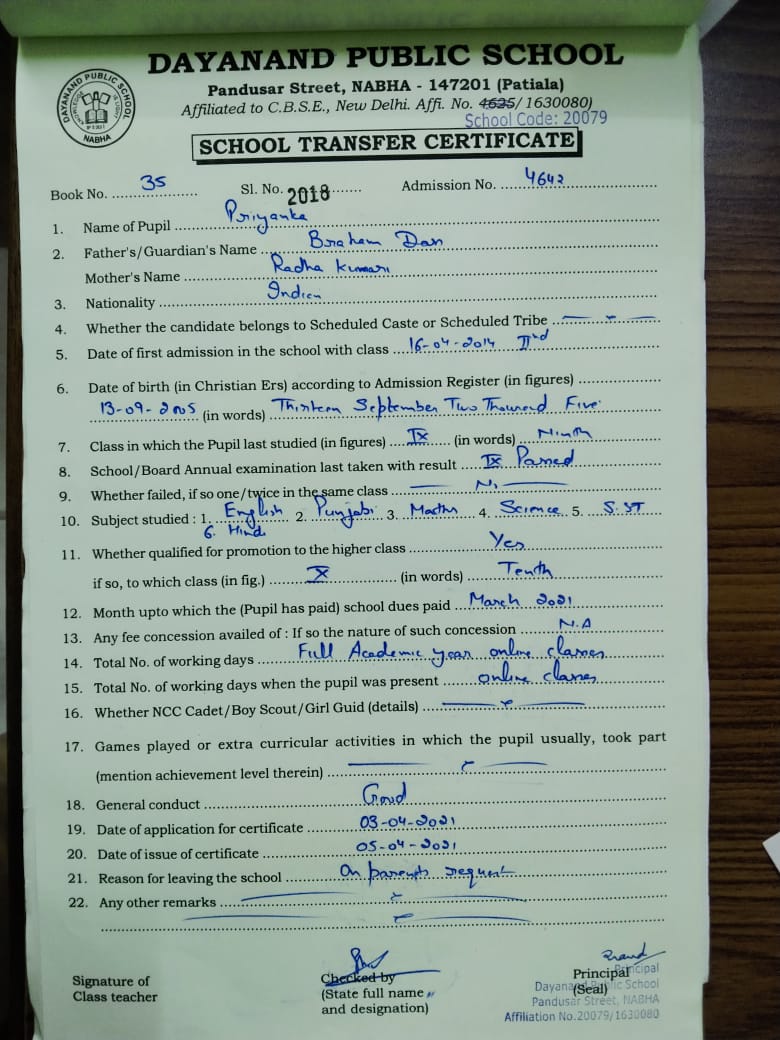 DAYANAND PUBLIC SCHOOL
Pandusar Street, NABHA - 147201 (Patiala)
Affiliated to C.B.S.E., New Delhi. Affi. No. 4625/1630080)
School Code: 20079
DAYANAND PUBLIC SCHOOL
NABHA
SCHOOL TRANSFER CERTIFICATE
Book No. 35 Sl. No. 2018 Admission No. 4642
1. Name of Pupil Priyanka
2. Father's/Guardian's Name Braham Dass
Mother's Name Radha Kumari
3. Nationality Indian
4. Whether the candidate belongs to Scheduled Caste or Scheduled Tribe
5. Date of first admission in the school with class 16-04-2014 IInd
6. Date of birth (in Christian Ers) according to Admission Register (in figures)
13-09-2005 (in words) Thirteen September Two Thousand Five
7. Class in which the Pupil last studied (in figures) IX (in words) Ninth
8. School/Board Annual examination last taken with result IX Passed
9. Whether failed, if so one/twice in the same class No
10. Subject studied : 1. English 2. Punjabi 3. Maths 4. Science 5. S.ST
6. Hindi
11. Whether qualified for promotion to the higher class Yes
if so, to which class (in fig.) X (in words) Tenth
12. Month upto which the (Pupil has paid) school dues paid March 2021
13. Any fee concession availed of : If so the nature of such concession N.A
14. Total No. of working days Full Academic year online classes
15. Total No. of working days when the pupil was present online classes
16. Whether NCC Cadet/Boy Scout/Girl Guid (details)
17. Games played or extra curricular activities in which the pupil usually, took part
(mention achievement level therein)
18. General conduct Good
19. Date of application for certificate 03-04-2021
20. Date of issue of certificate 05-04-2021
21. Reason for leaving the school On parents request
22. Any other remarks
Signature of
Class teacher
Checked by
(State full name
and designation)
Principal
(Seal)
Principal
Dayanand Public School
Pandusar Street, NABHA
Affiliation No.20079/1630080